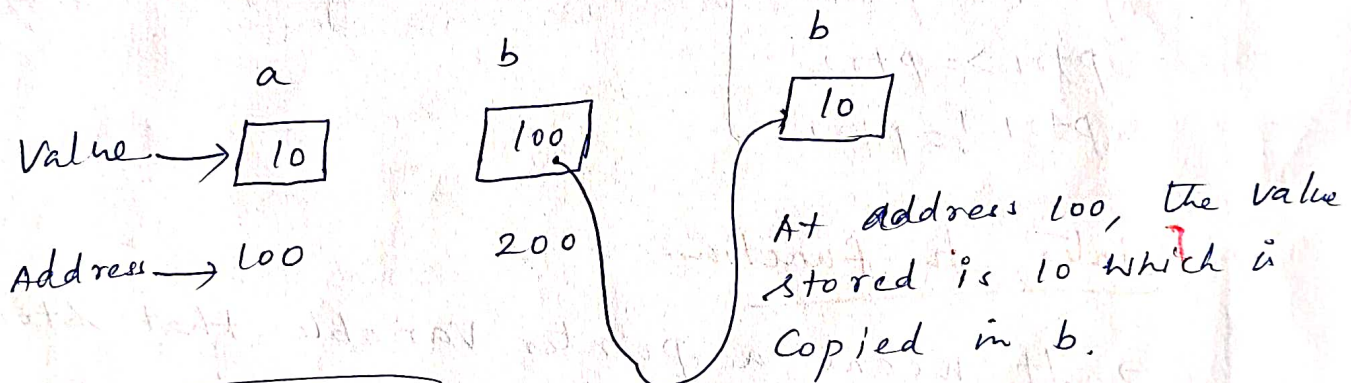 a b b
Value → 10 100 10
Address → 100 200
At address 100, the value
stored is 10 which is
Copied in b.